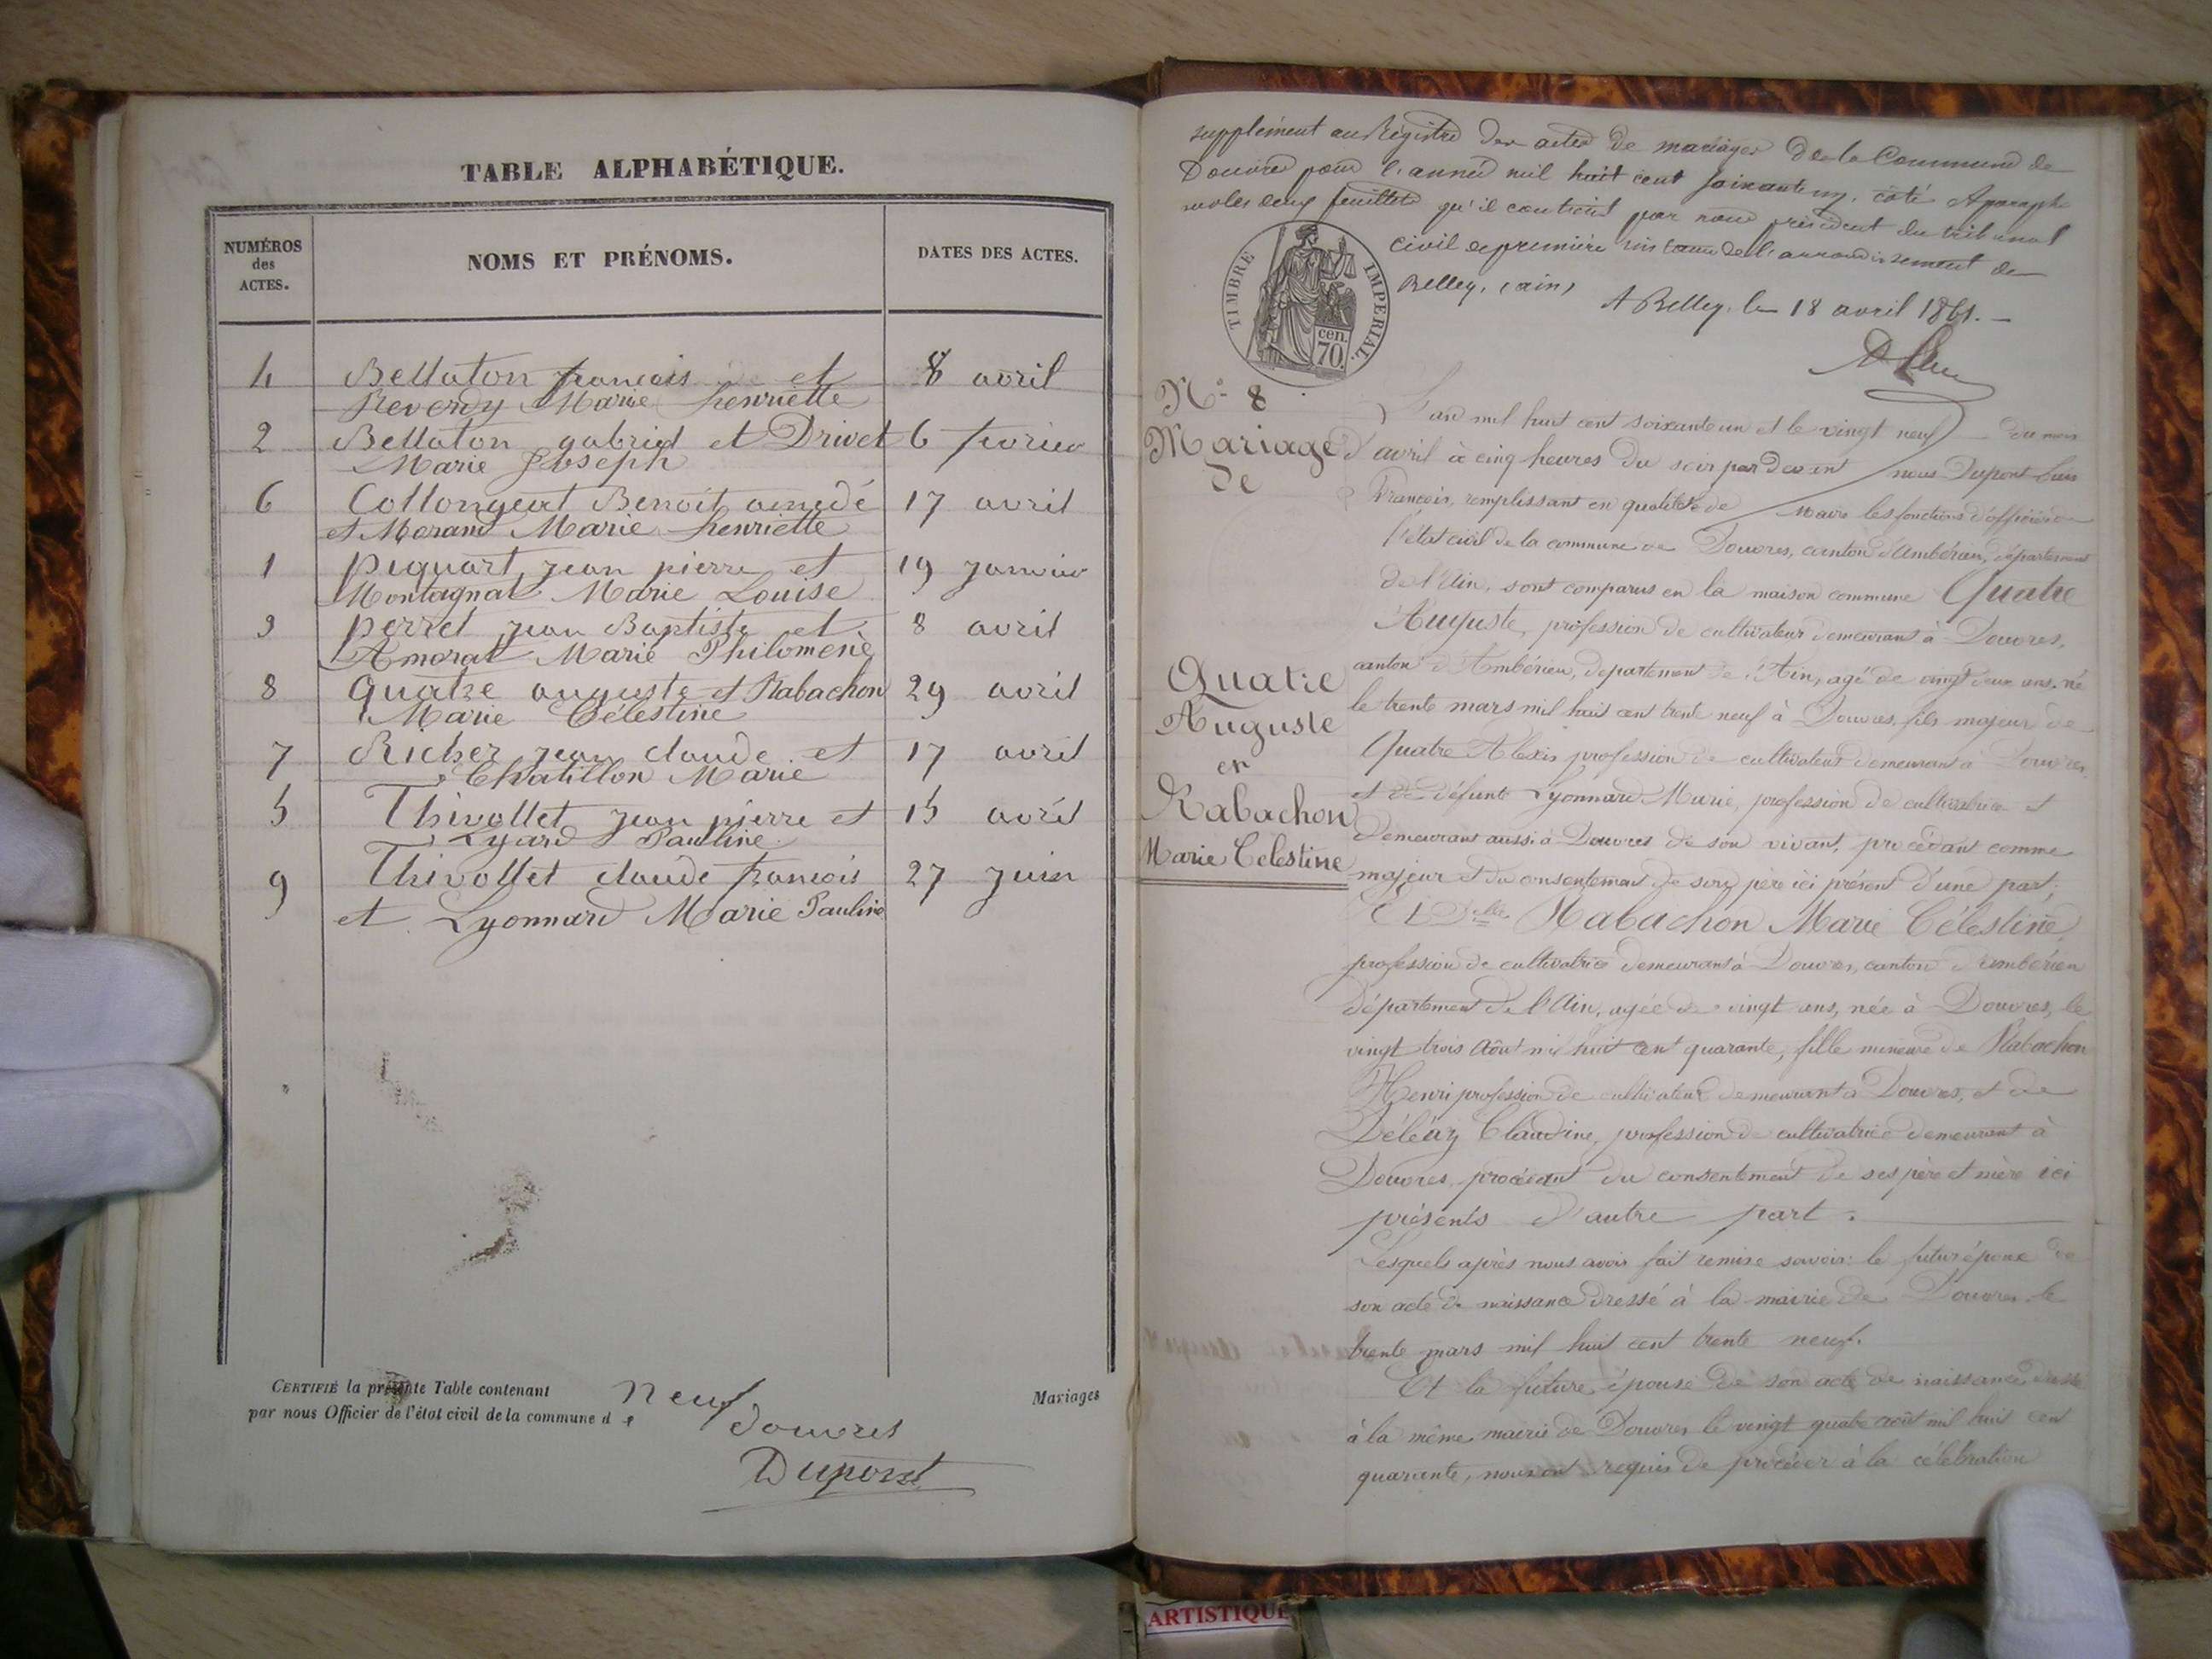 TABLE ALPHABÉTIQUE.
NUMÉROS
des
ACTES.
NOMS ET PRÉNOMS.
DATES DES ACTES.
4 Bellaton françois et 8 avril
Reverdy Marie henriette
2 Bellaton gabriel et Drivet 6 fevrier
Marie Joseph
6 Collongeat Benoit amedé 17 avril
et Morand Marie henriette
1 piquart jean pierre et 19 janvier
Montagnat Marie Louise
3 perret jean Baptiste et 8 avril
Amorat Marie Philomene
8 quatre auguste et Rabachon 29 avril
Marie Célestine
7 Richer jean claude et 17 avril
Chatillon Marie
5 Thivollet jean pierre et 15 avril
Lyard Pauline
9 Thivollet claude francois 27 juin
et Lyonnard Marie Pauline
CERTIFIÉ la présente Table contenant neuf Mariages
par nous Officier de l'état civil de la commune de
douvres
Dupont
supplément au Régistre des actes de mariages de la Commune de
Douvres pour l'année mil huit cent soixante un, coté & paraphé
sur les deux feuillets qu'il contient par nous président du tribunal
civil de première instance de l'arrondissement de
Belley, (ain)
A Belley, le 18 avril 1861.
TIMBRE IMPÉRIAL.
cen.
70.
N° 8
Mariage
De
Quatre
Auguste
et
Rabachon
Marie Celestine
L'an mil huit cent soixante un et le vingt neuf du mois
d'avril à cinq heures du soir par devant nous Dupont
François, remplissant en qualité de Maire les fonctions d'officier de
l'état civil de la commune de Douvres, canton d'Ambérieu, département
de l'Ain, sont comparus en la maison commune Quatre
Auguste, profession de cultivateur demeurant à Douvres,
canton d'Ambérieu, departement de l'Ain, agé de vingt deux ans, né
le trente mars mil huit cent trente neuf à Douvres, fils majeur de
Quatre Alexis profession de cultivateur demeurant à Douvres,
et de défunte Lyonnard Marie, profession de cultivatrice et
demeurant aussi à Douvres de son vivant, procédant comme
majeur et du consentement de son père ici présent d'une part;
Et Delle Rabachon Marie Célestine,
profession de cultivatrice demeurant à Douvres, canton d'Ambérieu
département de l'Ain, agée de vingt ans, née à Douvres, le
vingt trois Août mil huit cent quarante, fille mineure de Rabachon
Henri profession de cultivateur demeurant à Douvres, et de
Déléaz Claudine, profession de cultivatrice demeurant à
Douvres, procédant du consentement de ses père et mère ici
présents d'autre part.
Lesquels après nous avoir fait remise savoir: le futur époux de
son acte de naissance dressé à la mairie de Douvres le
trente mars mil huit cent trente neuf.
Et la future épouse de son acte de naissance dressé
à la même mairie de Douvres le vingt quatre août mil huit cent
quarante, nous ont requis de procéder à la célébration
ARTISTIQUE